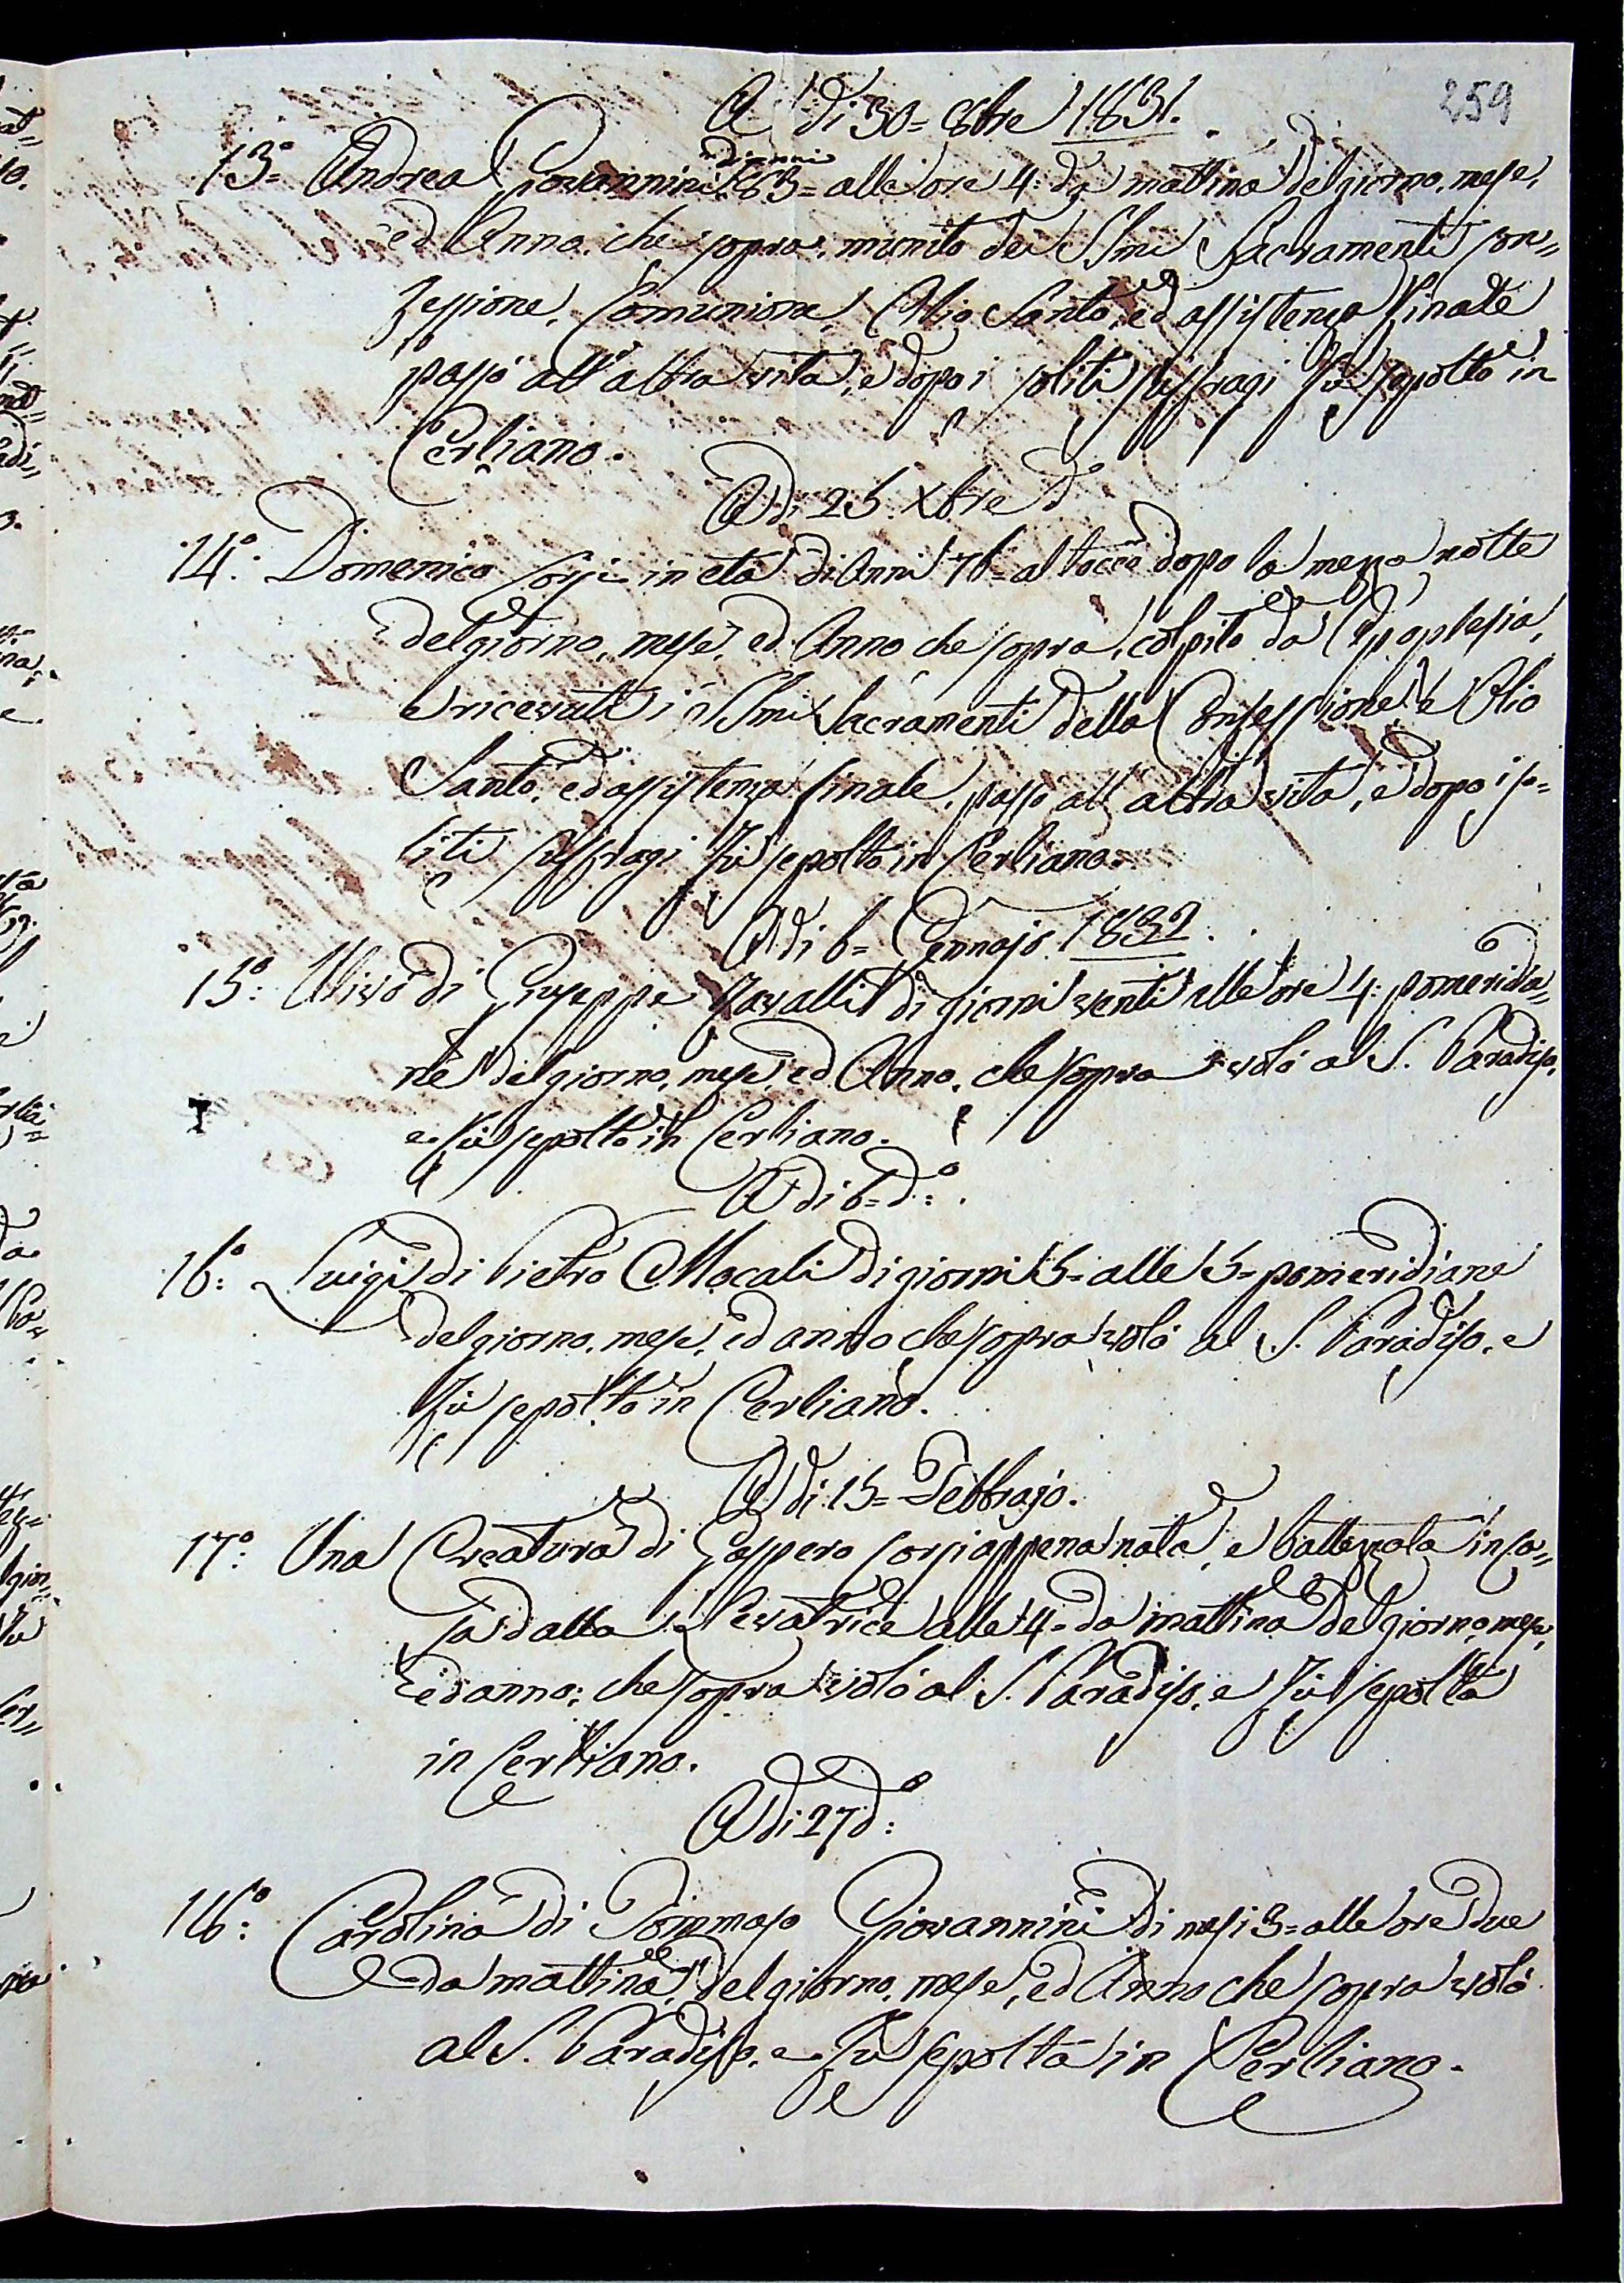 259
A dì 30= 8bre 1831.
13°= Andrea Giovannini di anni 63= alle ore 4: da mattina del giorno, mese,
ed Anno, che sopra, munito dei SSmi Sacramenti Con=
fessione, Comunione, Olio Santo, ed assistenza finale
passò all'altra vita, e dopo i soliti suffragi fù sepolto in
Cerliano.
A dì 25 Xbre d°
14°: Domenico Corsi in età di Anni 76= al tocco dopo la mezza notte
del giorno, mese, ed Anno che sopra, colpito da Apoplesia,
e ricevuti i SSmi Sacramenti della Confessione, e Olio
Santo, ed assistenza finale, passò all'altra vita, e dopo i so=
liti suffragi fù sepolto in Cerliano.
A dì 6= Gennajo. 1832.
15°: Ulivo di Giuseppe Cavalli di giorni venti alle ore 4: pomeridia=
ne del giorno, mese, ed Anno, che sopra volò al S. Paradiso,
e fù sepolto in Cerliano.
A dì 6= d°: .
16°: Luigi di Pietro Mocali di giorni 5= alle 5= pomeridiane
del giorno, mese, ed anno che sopra volò al S. Paradiso, e
fù sepolto in Cerliano.
A dì 15= Febbrajo.
17°: Una Creatura di Gaspero Corsi appena nata, e battezzata in ca=
sa dalla Levatrice alle 4= da mattina del giorno, mese,
ed anno, che sopra volò al S. Paradiso, e fù sepolta
in Cerliano.
A dì 27 d°:
18°: Carolina di Tommaso Giovannini di mesi 3= alle ore due
da mattina, del giorno, mese, ed Anno che sopra volò
al S. Paradiso, e fù sepolta in Cerliano.